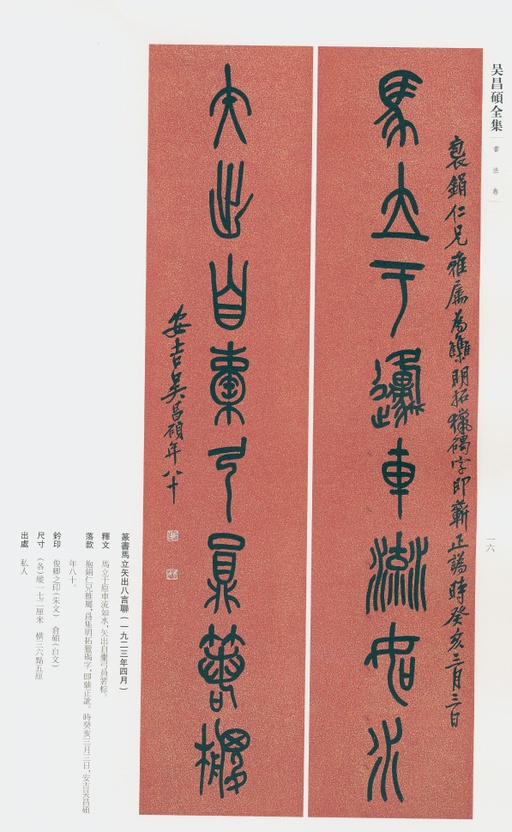 吴昌碩全集
書法卷
一六
裒鋗仁兄雅屬為集明拓獵碣字即蘄正謁時癸亥三月三日
馬立于邍車流如水
矢出自櫜弓員
安吉吳昌碩年八十
篆書馬立矢出八言聯(一九二三年四月)
釋文 馬立于原車流如水,矢出自櫜弓員
落款 抱鋗仁兄雅屬,爲集明拓獵碣字,即蘄正謁。時癸亥三月三日,安吉吳昌碩
年八十。
鈐印 俊卿之印(朱文) 倉碩(白文)
尺寸 (各)縱一七二厘米 橫三六點五厘
出處 私人